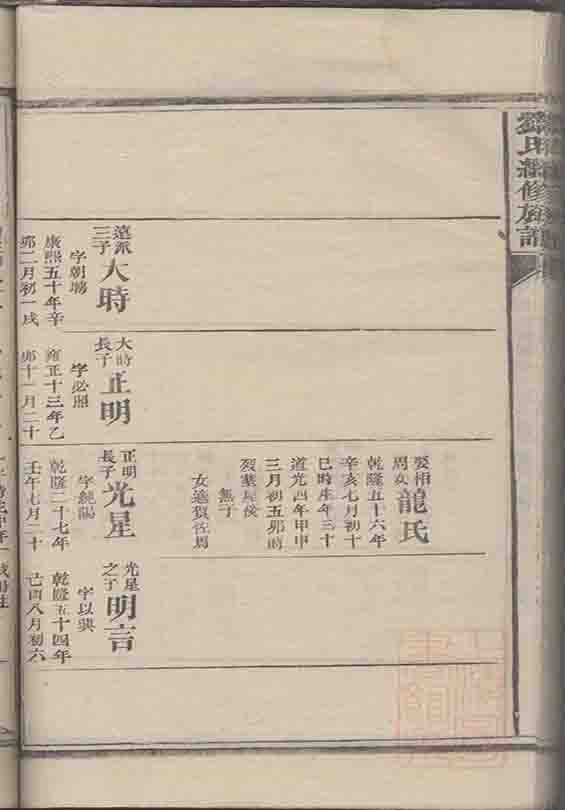 劉氏續修族譜
遠派
三子
大時
字朝場
康熙五十年辛
卯二月初一戌
大時
長子
正明
字必照
雍正十三年乙
卯十一月二十
娶相
周女
龍氏
乾隆五十六年
辛亥七月初十
巳時生年三十
道光四年甲申
三月初五卯時
歿葬屋後
無子
女適賀佐周
正明
長子
光星
字純陽
乾隆二十七年
壬午七月二十
光星
之子
明言
字以典
乾隆五十四年
己酉八月初六